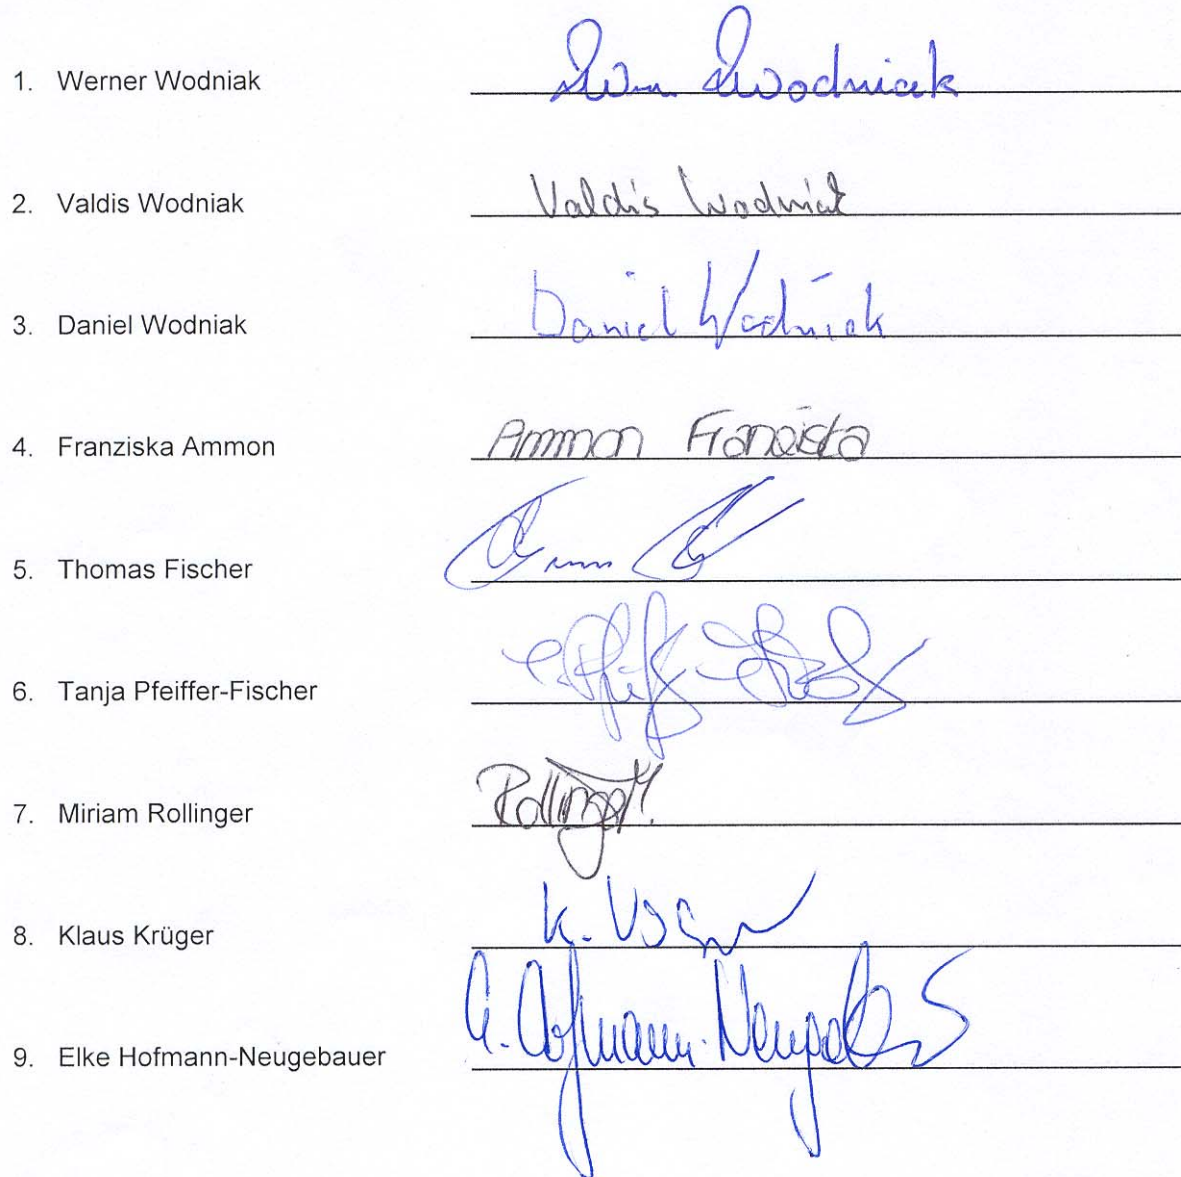 1. Werner Wodniak Wodniak
2. Valdis Wodniak Valdis Wodniak
3. Daniel Wodniak Daniel Wodniak
4. Franziska Ammon Ammon Franziska
5. Thomas Fischer
6. Tanja Pfeiffer-Fischer
7. Miriam Rollinger Rollinger M.
8. Klaus Krüger K.
9. Elke Hofmann-Neugebauer